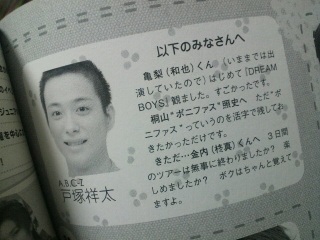 以下のみなさんへ
亀梨(和也)くん (いままでは出
演していたので)はじめて「DREAM
BOYS」観ました。すごかったです。
桐山"ボニファス"照史へ ただ"ボ
ニファス"っていうのを活字で残してお
きたかっただけです。
きただ…金内(柊真)くんへ 3日間
のツアーは無事に終わりましたか? 楽
しめましたか? ボクはちゃんと覚えて
ますよ。
A.B.C-Z
戸塚祥太
ジュニア